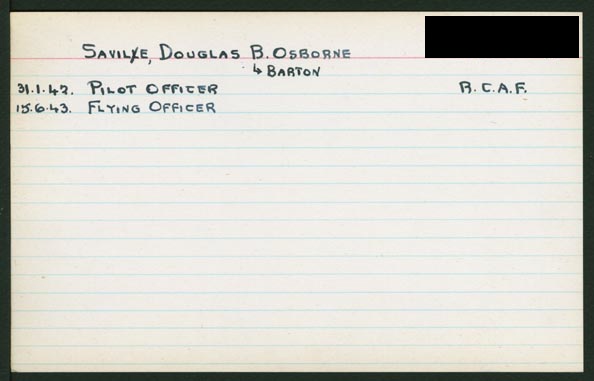 SAVILE, DOUGLAS B. OSBORNE
↳ BARTON
31.1.42. PILOT OFFICER R.C.A.F.
15.6.43. FLYING OFFICER